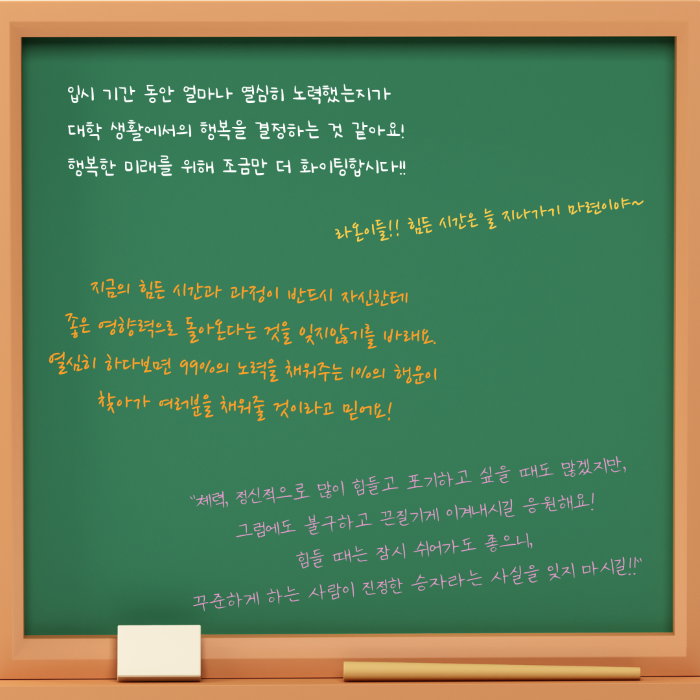 입시 기간 동안 얼마나 열심히 노력했는지가
대학 생활에서의 행복을 결정하는 것 같아요!
행복한 미래를 위해 조금만 더 화이팅합시다!!
라온이들!! 힘든 시간은 늘 지나가기 마련이야~
지금의 힘든 시간과 과정이 반드시 자신한테
좋은 영향력으로 돌아온다는 것을 잊지않기를 바래요.
열심히 하다보면 99%의 노력을 채워주는 1%의 행운이
찾아가 여러분을 채워줄 것이라고 믿어요!
"체력, 정신적으로 많이 힘들고 포기하고 싶을 때도 많겠지만,
그럼에도 불구하고 끈질기게 이겨내시길 응원해요!
힘들 때는 잠시 쉬어가도 좋으니,
꾸준하게 하는 사람이 진정한 승자라는 사실을 잊지 마시길!!"